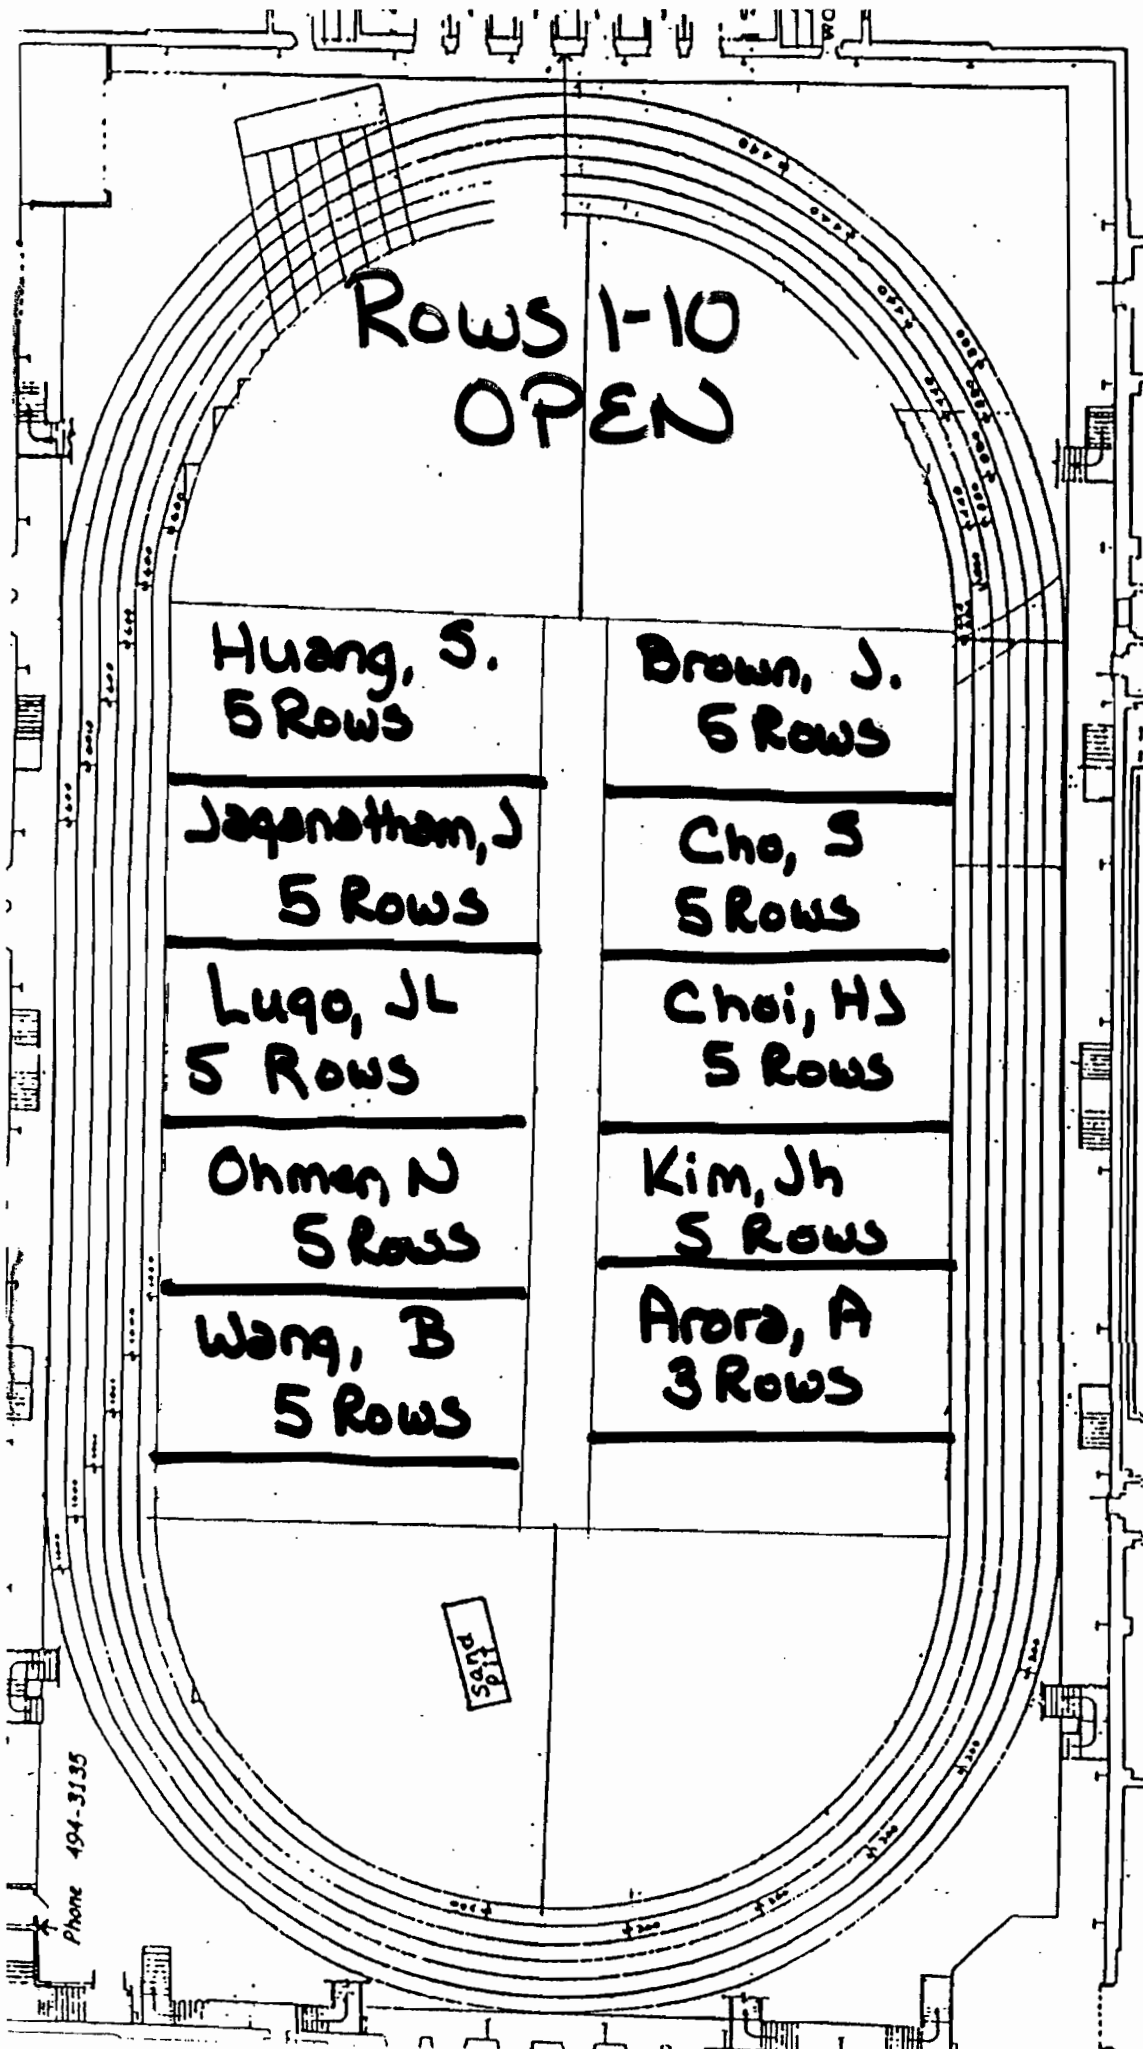 Rows 1-10
OPEN
Huang, S.
5 Rows
Jaganatham, J
5 Rows
Lugo, JL
5 Rows
Ohmen, N
5 Rows
Wang, B
5 Rows
Brown, J.
5 Rows
Cho, S
5 Rows
Choi, HJ
5 Rows
Kim, Jh
5 Rows
Arora, A
3 Rows
Sand
pit
Phone 494-3135